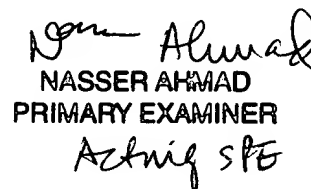 Nasser Ahmad
NASSER AHMAD
PRIMARY EXAMINER
Acting SPE